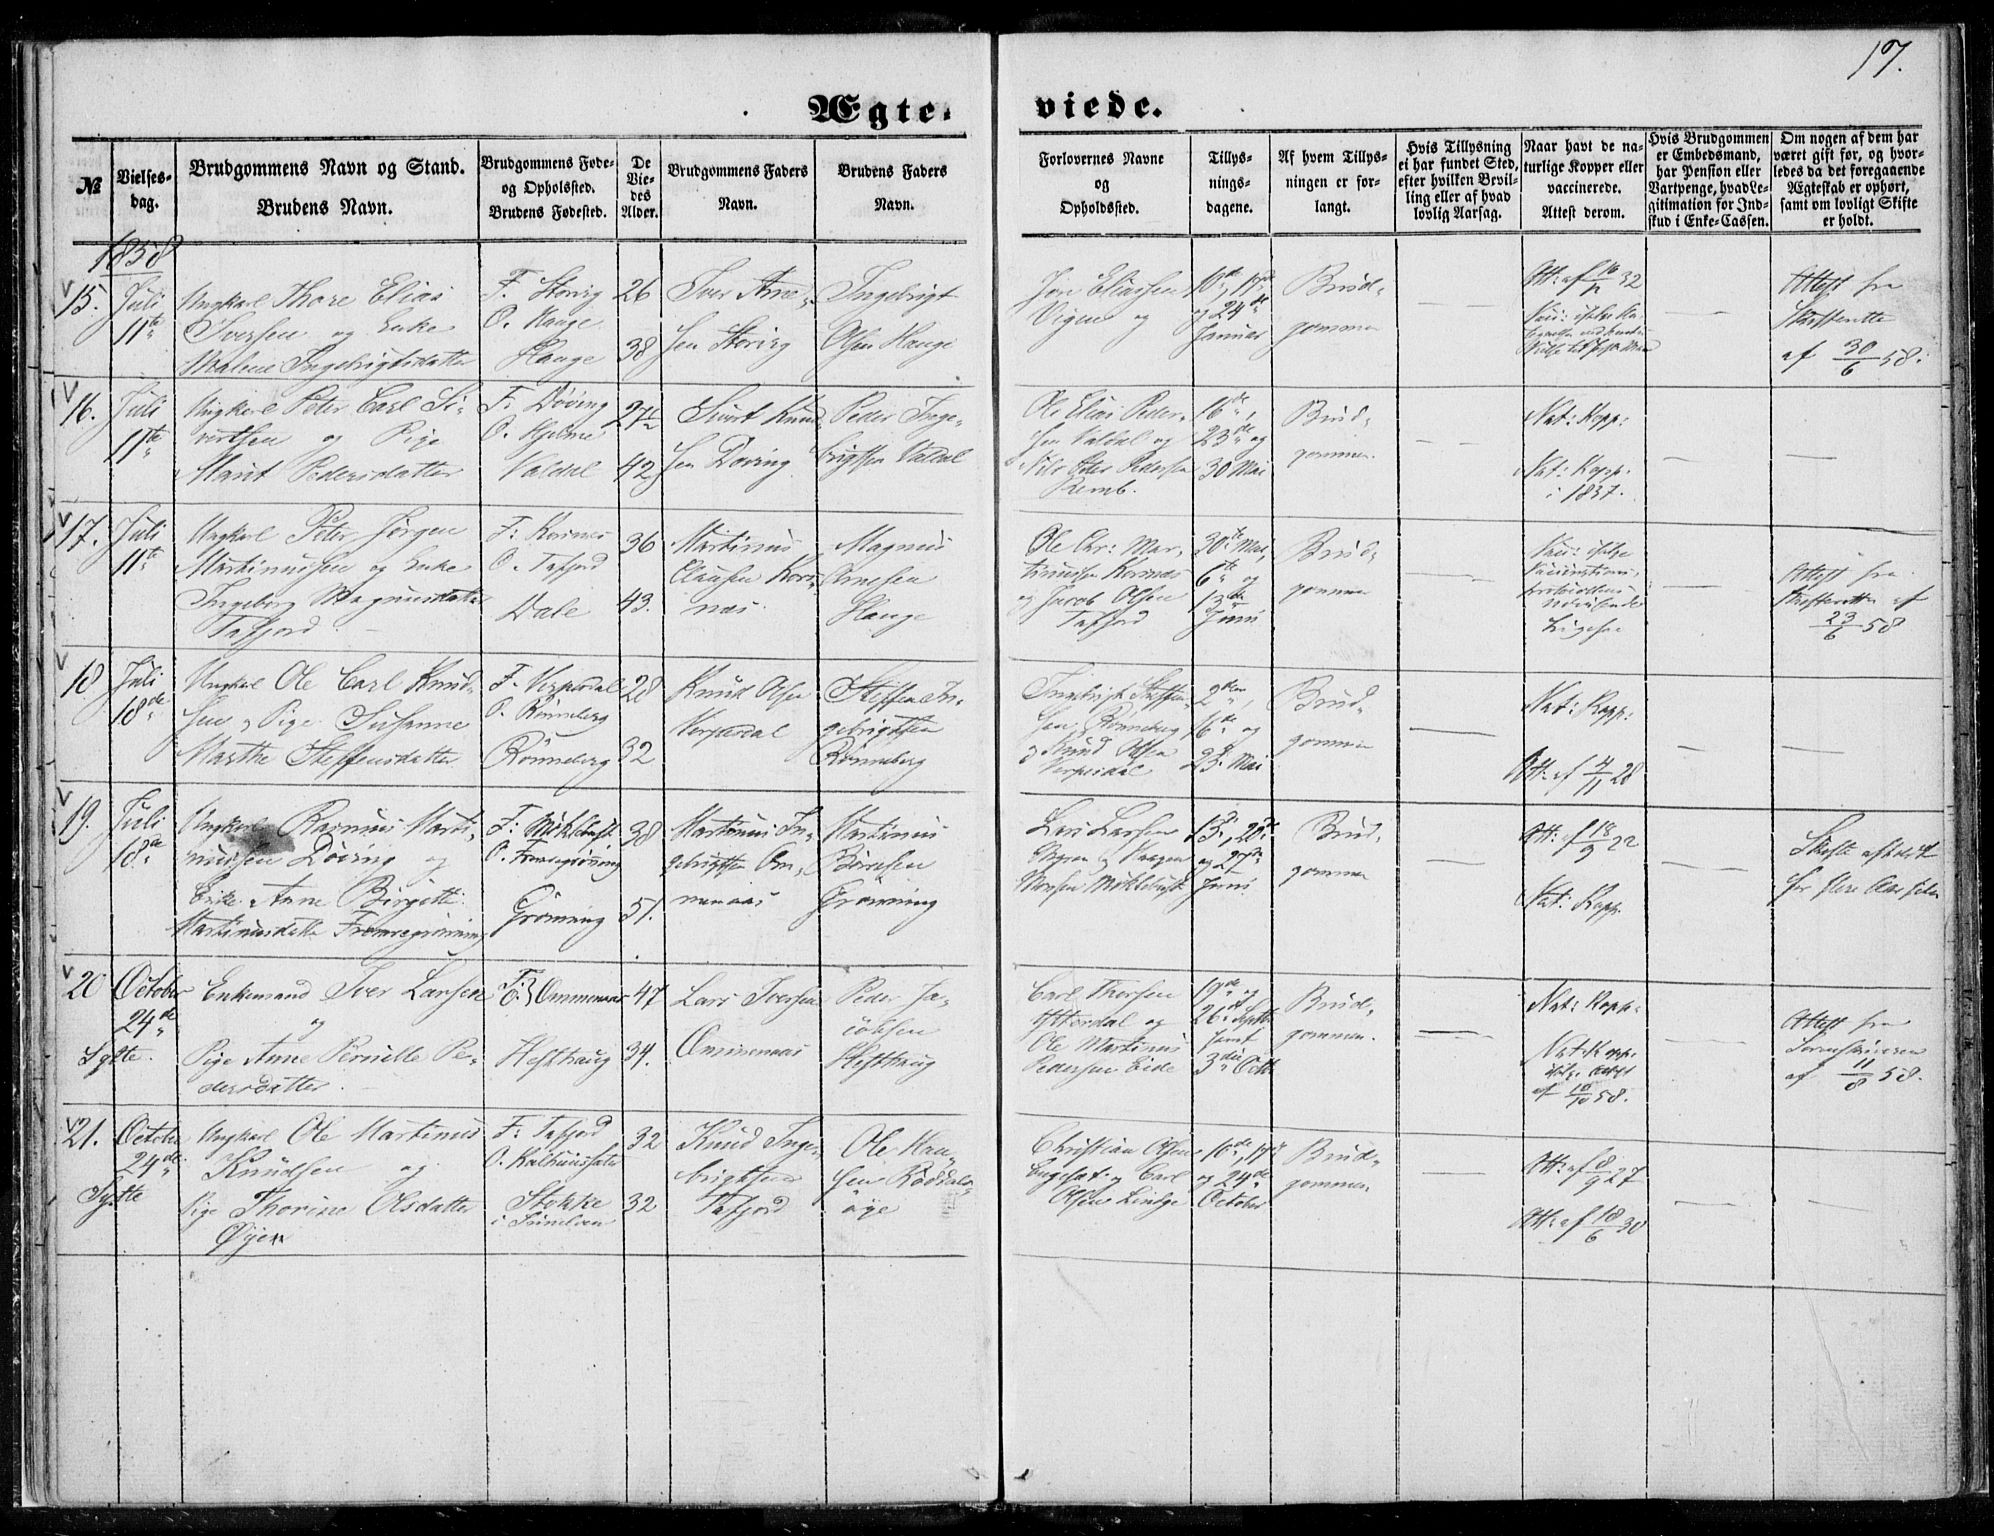 17.
Ægte-
viede.
№
Vielses-
dag.
Brudgommens Navn og Stand.
Brudens Navn.
Brudgommens Føde-
og Opholdssted.
Brudens Fødested.
De
Vie-
des
Alder.
Brudgommens Faders
Navn.
Brudens Faders
Navn.
Forlovernes Navne
og
Opholdssted.
Tillys-
nings-
dagene.
Af hvem Tillys-
ningen er for-
langt.
Hvis Tillysning
ei har fundet Sted,
efter hvilken Bevil-
ling eller af hvad
lovlig Aarsag.
Naar havt de na-
turlige Kopper eller
vaccinerede.
Attest derom.
Hvis Brudgommen
er Embedsmand,
har Pension eller
Vartpenge, hvad Le-
gitimation for Ind-
skud i Enke-Cassen.
Om nogen af dem har
været gift før, og hvor-
ledes da det foregaaende
Ægteskab er ophørt,
samt om lovligt Skifte
er holdt.
1858
15.
Juli
11te
Ungkarl Thore Elias
Iversen og Enke
Malene Ingebrigtsdatter
F. Storvig
O. Hauge
Hauge
26
38
Iver Arne-
sen Storvig
Ingebrigt
Olsen Hauge
Jon Eliassen
Vigen og
10de, 17de
og 24de
Januar
Brud-
gommen
Att: af 16/12 32
Attest fra
Skifteretten
af 30/6 58.
16.
Juli
11te
Ungkarl Peter Carl Si-
vertsen og Pige
Marit Pedersdatter
F. Døving
O. Hjelme
Valdal
27½
42
Sivert Knud-
sen Døving
Peder Inge-
brigtsen Valdal
Ole Elias Peder-
sen Valdal og
Nils Peter Pedersen
Remb.
16de,
23de og
30 Mai
Brud-
gommen
Nat: Kopp:
Nat: Kopp:
i 1837.
17.
Juli
11te
Ungkarl Peter Jørgen
Martinussen og Enke
Ingeborg Magnusdatter
Tafjord
F: Korsnes
O. Tafjord
Dale
36
43.
Martinus
Clausen Kors-
næs
Magnus
Arnesen
Hauge
Ole Chr: Mar-
tinussen Korsnæs
og Jacob Olsen
Tafjord
30te Mai,
6te og
13de
Juni
Brud-
gommen
Vacc: ifølge
Vaccinations-
Protocollens
Udvisende
Ligesaa
Attest fra
Skifteretten af
23/6 58
18
Juli
18de
Ungkarl Ole Carl Knud-
sen og Pige Susanne
Marthe Steffensdatter
F. Verpesdal
O. Rønneberg
Rønneberg
28
32
Knud Olsen
Verpesdal
Steffen In-
gebrigtsen
Rønneberg
Ingebrigt Steffen-
sen Rønneberg
og Knud Olsen
Verpesdal
2den,
16de og
23de Mai
Brud-
gommen
Nat: Kopp:
Att: af 4/11 28
19.
Juli
18de
Ungkarl Rasmus Marti-
nussen Døving og
Enke Anne Birgitte
Martinusdatter Fremregrønning
F: Miklebust
O. Fremregrønning
Grønning
38
51.
Martinus In-
gebrigtsen Om-
menaas
Martinus
Børesen
Grønning
Lars Larsen
og
Monsen Miklebust
13de, 20de
og 27de
Juni
Brud-
gommen
Att: af 18/9 22
Nat: Kopp.
Skifte afholdt
for flere Aar siden
20
October
24de
Sylte.
Enkemand Iver Larsen
og
Pige Anne Pernille Pe-
dersdatter
F:
O: } Ommenaas
Hesthaug
47
34.
Lars Iversen
Ommenaas
Peder Ja-
cobsen
Hesthaug
Carl Thorsen
Uttordal og
Ole Martinus
Pedersen Eide
19de og
26de Septbr
samt
3die Octbr
Brud-
gommen.
Nat: Kopp.
Nat: Kopp.
ifølge Attest
af 10/10 58.
Attest fra
Sorenskriveren
af 11/8 58.
21.
October
24de
Sylte
Ungkarl Ole Martinus
Knudsen og
Pige Thorine Olsdatter
Øyen
F: Tafjord
O. Kalhussæter
Stokke
i Sunelven
32
32
Knud Inge-
brigtsen
Tafjord
Ole Han-
sen Rødsæt-
øye
Christian Olsen
Engeset og Carl
Olsen Linge
10de, 17de
og 24de
October
Brud-
gommen
Att: af 8/9 27
Att: af 18/6 30